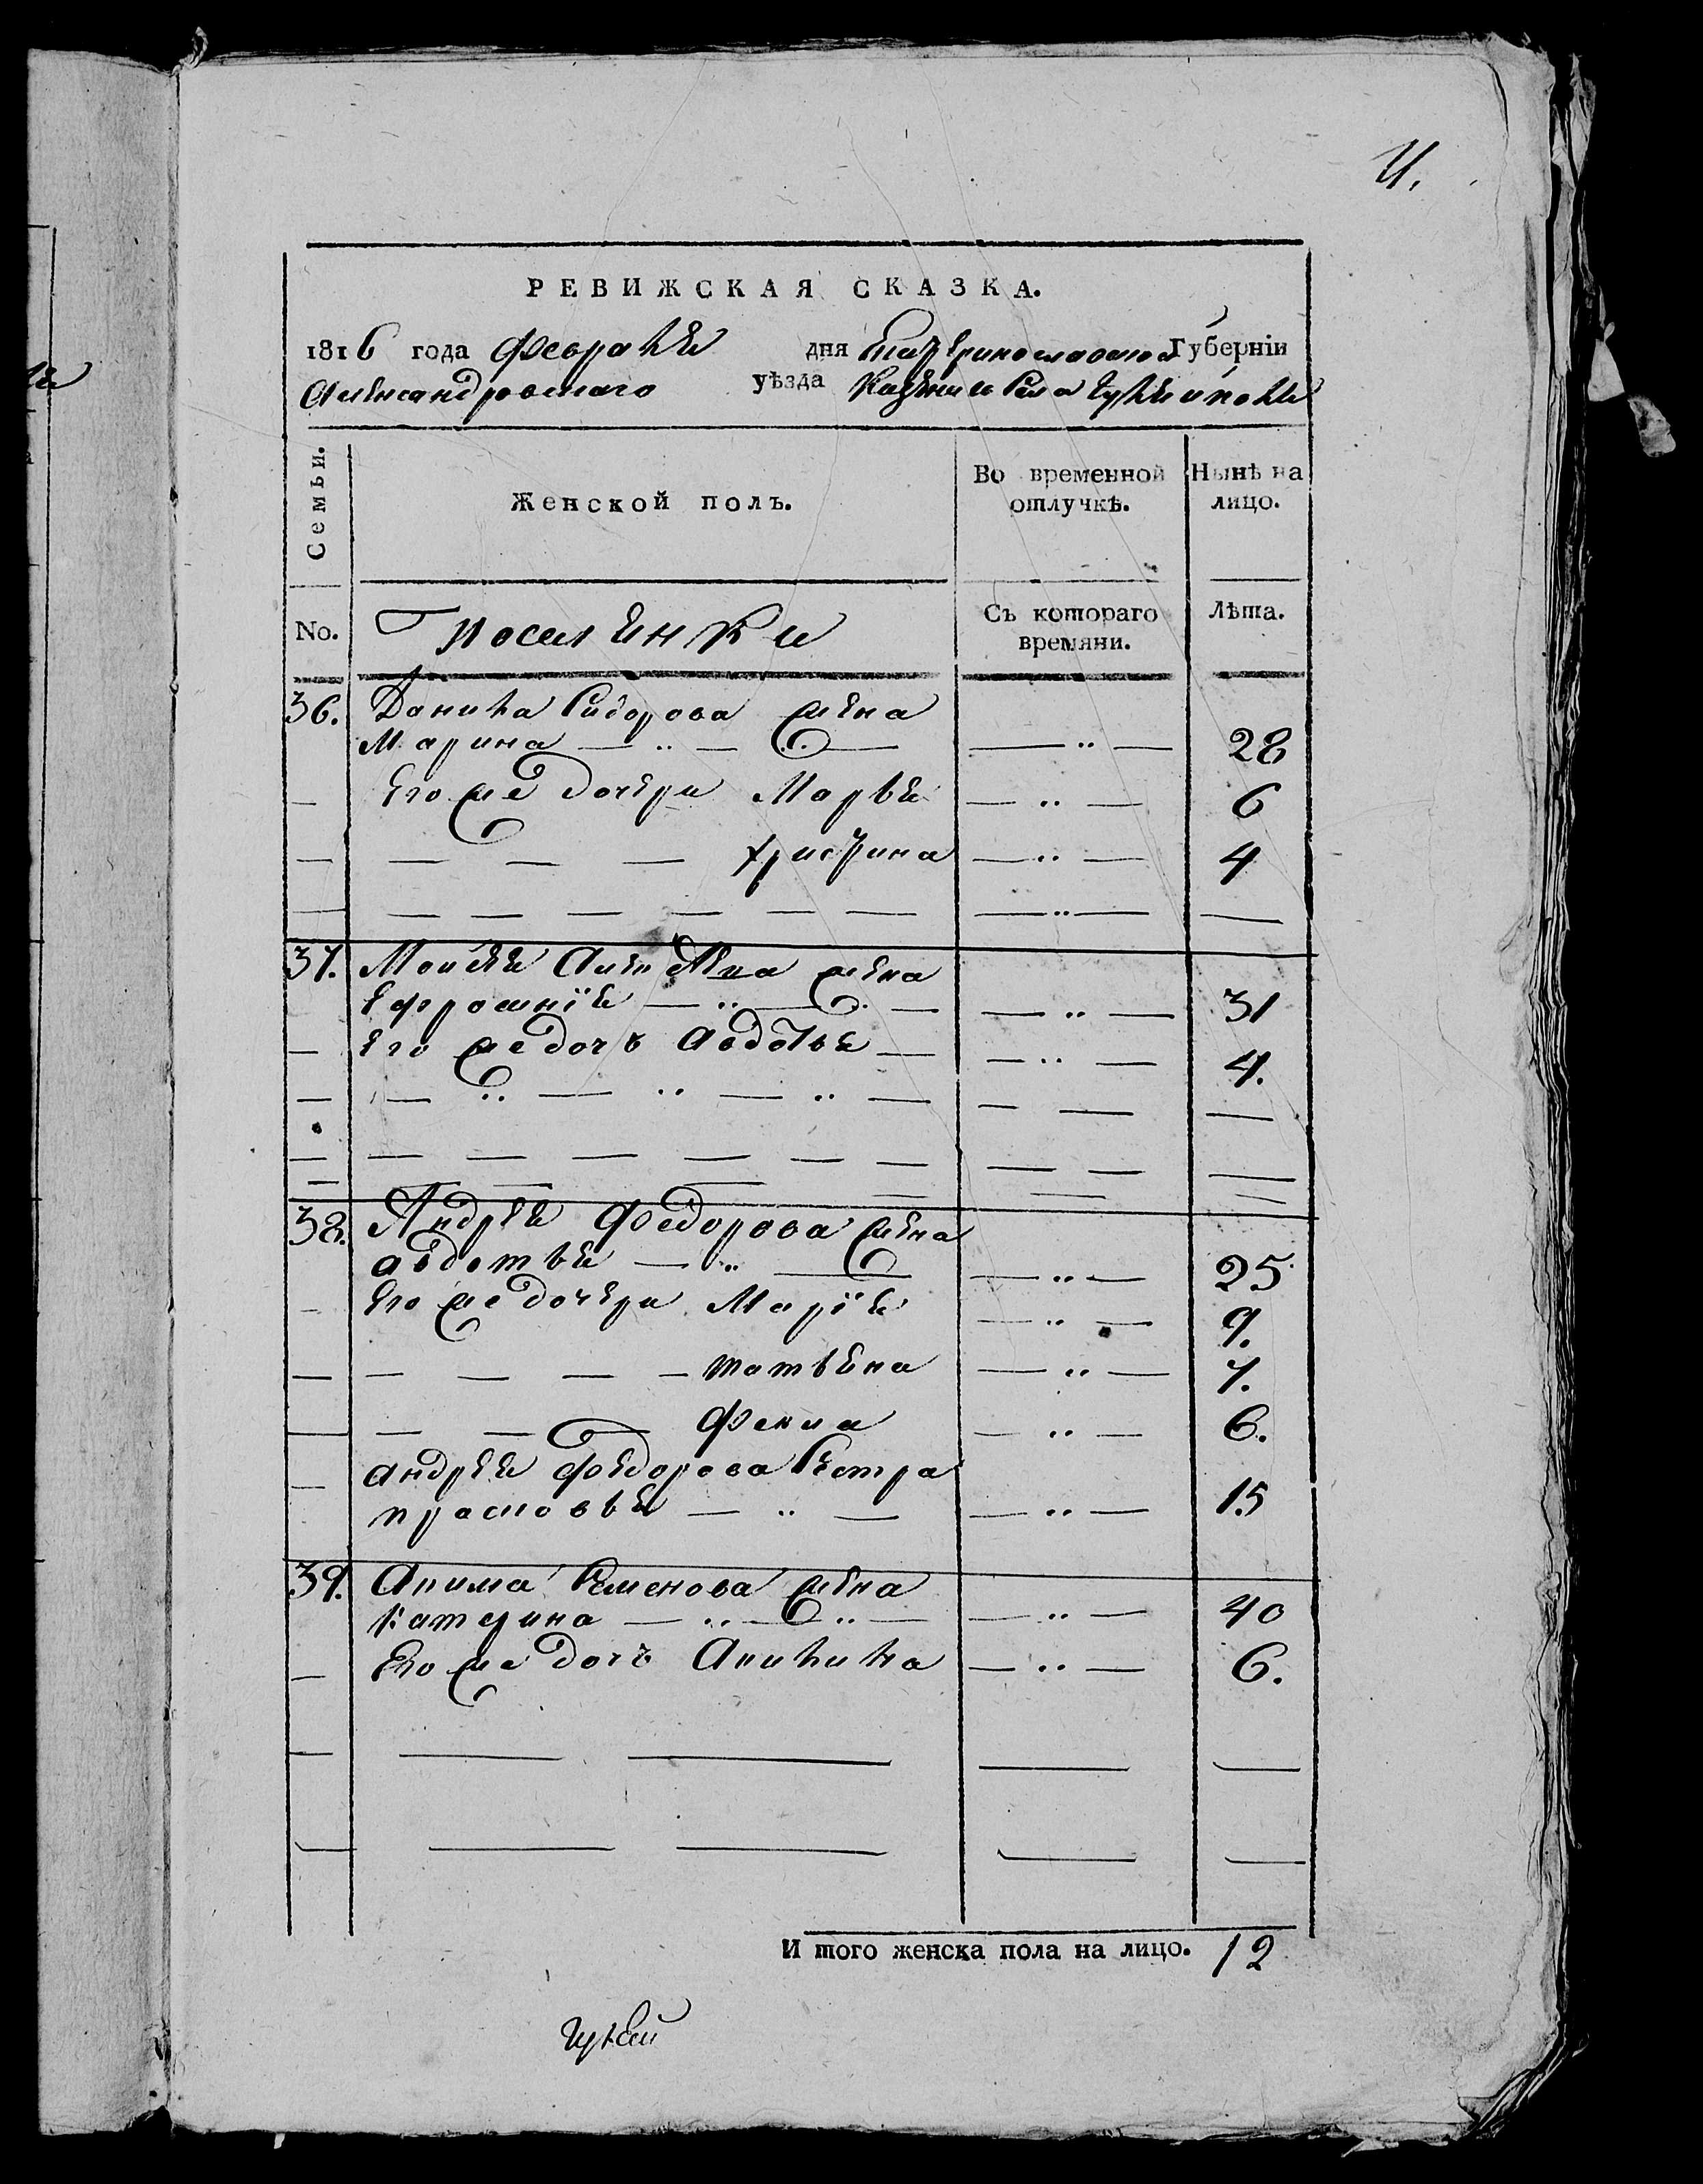 РЕВИЖСКАЯ СКАЗКА.
1816 года февраля дня Екатеринославской Губернiи
Александровскаго уѣзда Казенного Села
Семьи.
Женской полъ.
Во временной отлучкѣ.
Нынѣ на лицо.
No.
Поселянки
Съ котораго времяни.
Лѣта.
36. Данила Сидорова жена
Марина — „ — — „ — 28
— Его же дочери Марья — „ — 6
— — — — Христина — „ — 4
37. Моисея жена
Ефросинїя — „ — — „ — 31
— Его же дочь Авдотья — — „ — 4.
38. Андрея Федорова жена
авдотья — „ — — „ — 25
— Его же дочери Марїя — „ — 9.
— — — — — татьяна — „ — 7.
— — — — Фекла — „ — 6.
— андрея Федорова Сестра
прасковья — „ — — „ — 15
39. Акима Семенова жена
Катерина — „ — „ — — „ — 40
— Его же дочь Акилина — „ — 6.
И того женска пола на лицо. 12